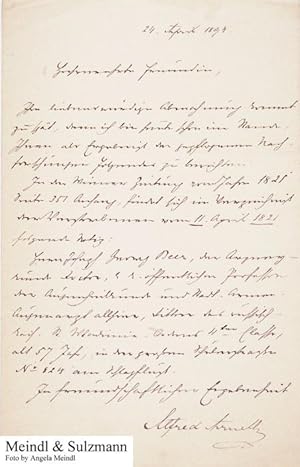 24. April 1894
Hochverehrte Freundin,
Ihre liebenswürdige Abmachung kommt
zu spät, denn ich bin heute schon im Stande,
Ihnen als Ergebniß der gepflogenen Nach-
forschungen Folgendes zu berichten.
In der Wiener Zeitung vom Jahre 1821
Seite 351 Anhang, findet sich im Verzeichniß
der Verstorbenen vom 11. April 1821
folgende Notiz:
Herr Joseph Georg Beer, der Augenarznei-
kunde Doctor, k. k. öffentlicher Professor
der Augenheilkunde und Stadt-Armen-
Augenarzt allhier, Ritter des russisch-
kais. St. Wladimir-Ordens 4ter Classe,
alt 57 Jahr, in der großen Schulerstraße
No 824 am Schlagfluß.
In freundschaftlicher Ergebenheit
Alfred Arneth
Meindl & Sulzmann
Foto by Angela Meindl